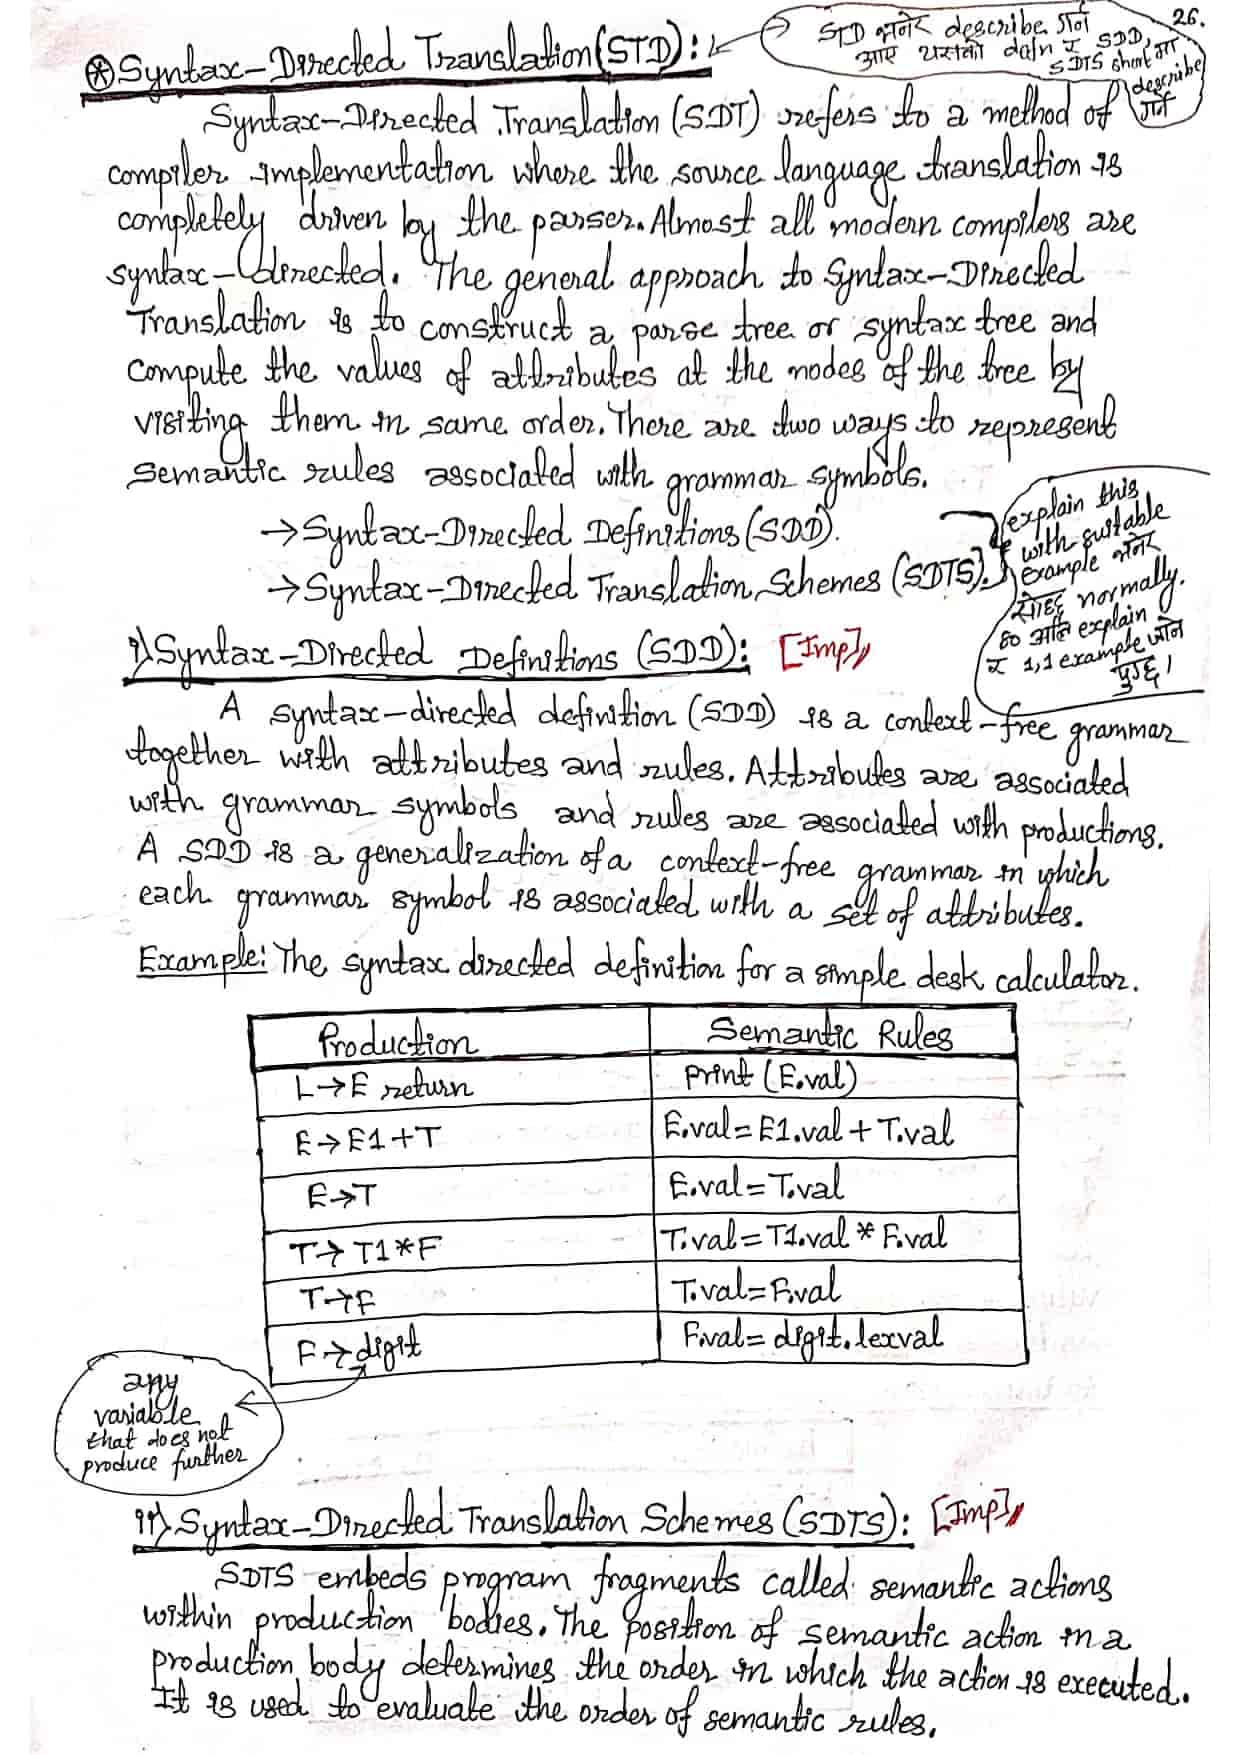 26.
⊛ Syntax-Directed Translation(STD):
STD भनेर describe गर्न
आए यसको defn र SDD,
SDTS short मा
describe
गर्ने
Syntax-Directed Translation (SDT) refers to a method of
compiler implementation where the source language translation is
completely driven by the parser. Almost all modern compilers are
syntax-directed. The general approach to Syntax-Directed
Translation is to construct a parse tree or syntax tree and
compute the values of attributes at the nodes of the tree by
visiting them in same order. There are two ways to represent
semantic rules associated with grammar symbols.
→Syntax-Directed Definitions(SDD).
→Syntax-Directed Translation Schemes (SDTS).
explain this
with suitable
example भनेर
सोध्छ normally.
so अलि explain
र 1,1 example भने
पुग्छ।
i) Syntax-Directed Definitions (SDD): [Imp]
A syntax-directed definition (SDD) is a context-free grammar
together with attributes and rules. Attributes are associated
with grammar symbols and rules are associated with productions.
A SDD is a generalization of a context-free grammar in which
each grammar symbol is associated with a set of attributes.
Example: The syntax directed definition for a simple desk calculator.
Production Semantic Rules
L→E return print (E.val)
E→E1+T E.val=E1.val+T.val
E→T E.val=T.val
T→T1*F T.val=T1.val * F.val
T→F T.val=F.val
F→digit F.val=digit.lexval
any
variable
that does not
produce further
ii) Syntax-Directed Translation Schemes (SDTS): [Imp]
SDTS embeds program fragments called semantic actions
within production bodies. The position of semantic action in a
production body determines the order in which the action is executed.
It is used to evaluate the order of semantic rules.